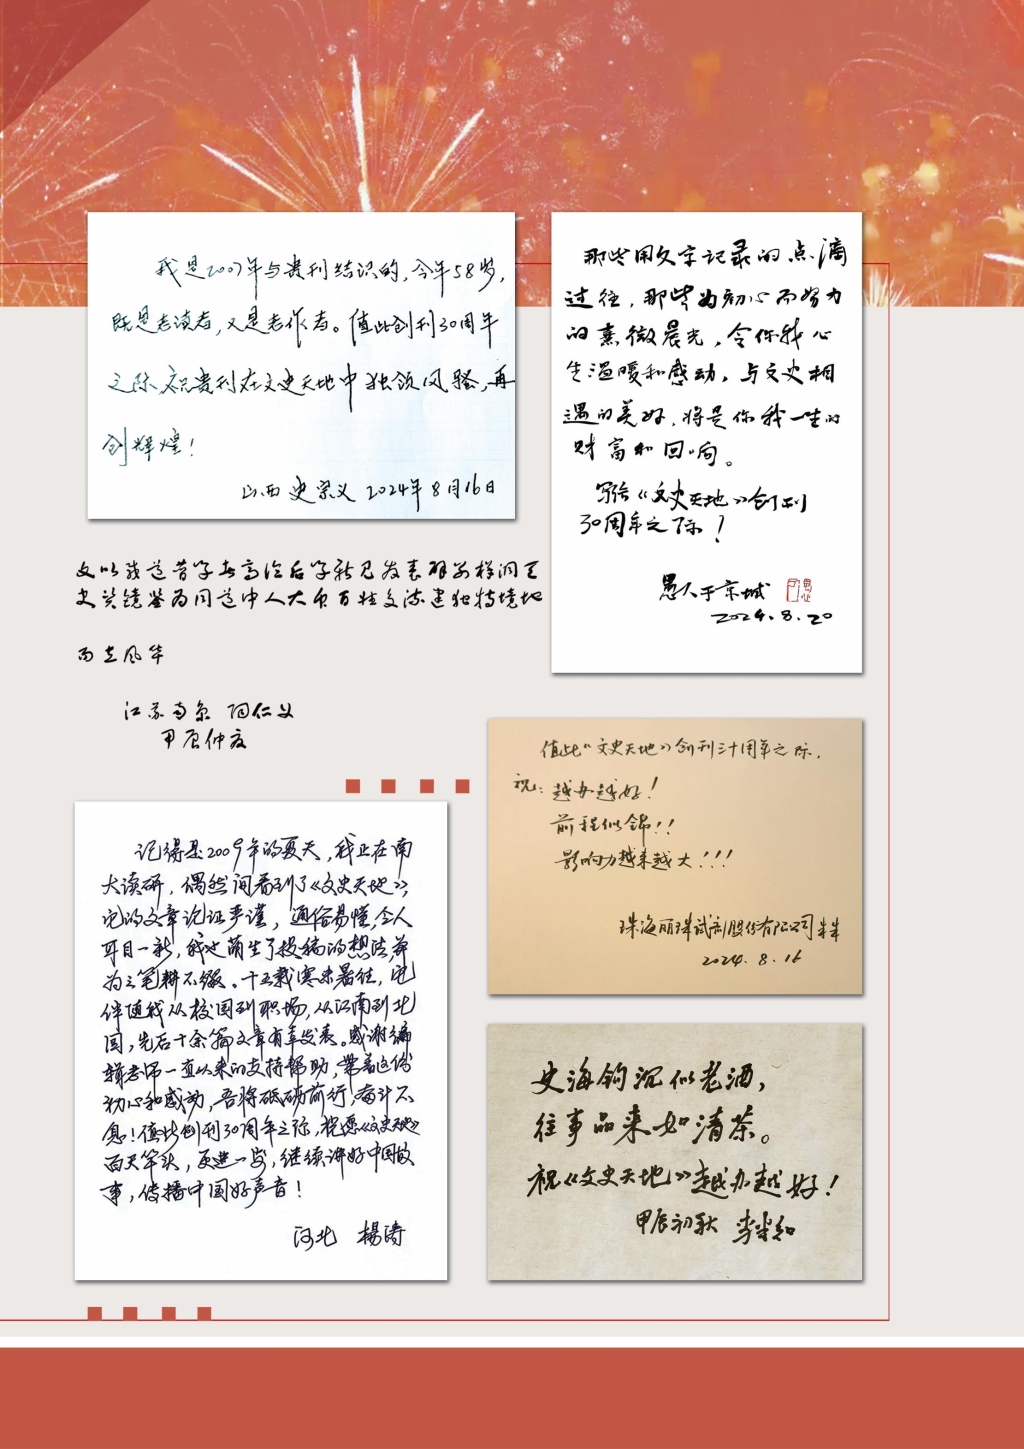 我是2007年与贵刊结识的,今年58岁,
既是老读者,又是老作者。值此创刊30周年
之际,祝贵刊在文史天地中独领风骚,再
创辉煌!
山西 史宗义 2024年8月16日
那些用文字记录的点滴
过往,那些为初心而努力
的熹微晨光,令你我心
生温暖和感动,与文史相
遇的美好,将是你我一生的
财富和回响。
写给《文史天地》创刊
30周年之际!
愚人于京城
2024.8.20
文以载道昔学
史
而立风华
江苏南京 仁义
甲辰仲夏
值此《文史天地》创刊三十周年之际,
祝:越办越好!
前程似锦!!
影响力越来越大!!!
珠海丽珠试剂股份有限公司
2024.8.16
记得是2009年的夏天,我正在南
大读研,偶然间看到了《文史天地》,
它的文章论证严谨,通俗易懂,令人
耳目一新,我也萌生了投稿的想法并
为之笔耕不辍。十五载寒来暑往,它
伴随我从校园到职场,从江南到北
国,先后十余篇文章有幸发表。感谢编
辑老师一直以来的支持帮助,带着这份
初心和感动,吾将砥砺前行,奋斗不
息!值此创刊30周年之际,祝愿《文史天地》
百尺竿头,更进一步,继续讲好中国故
事,传播中国好声音!
河北 杨涛
史海钩沉似老酒,
往事品来如清茶。
祝《文史天地》越办越好!
甲辰初秋 李